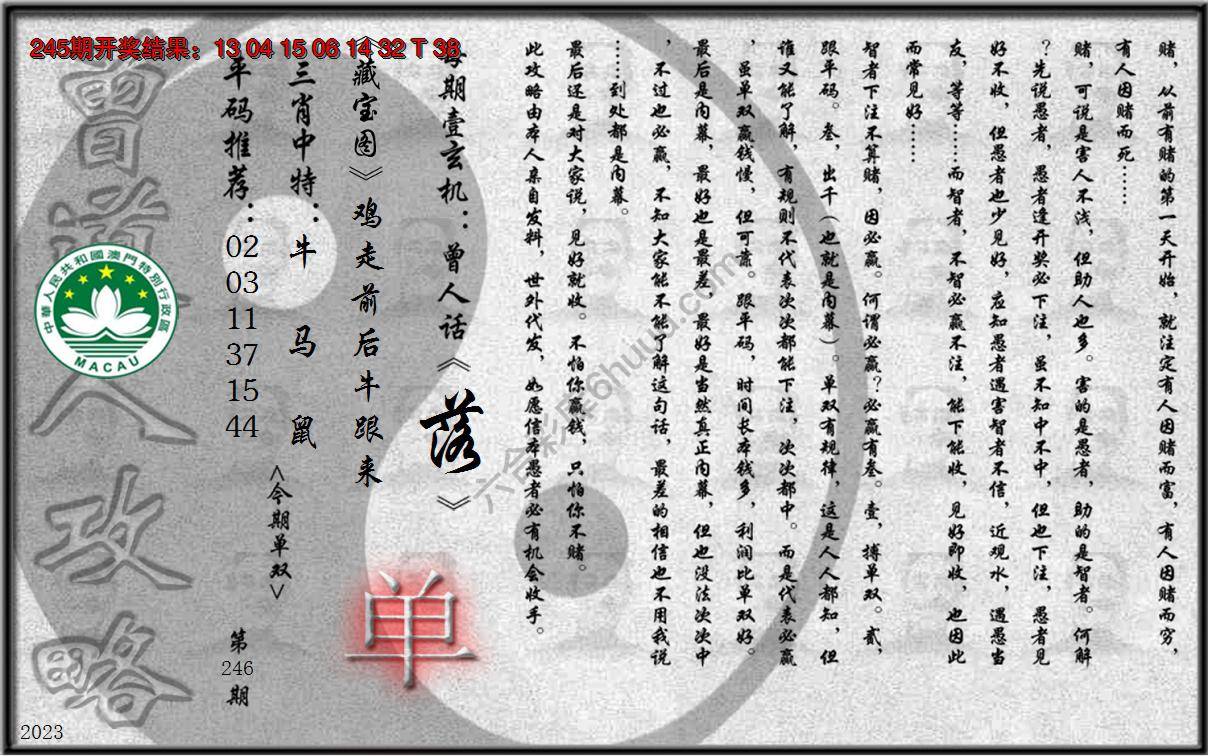 245期开奖结果：13 04 15 06 14 32 T 38
赌，从前有赌的第一天开始，就注定有人因赌而富，有人因赌而穷，
有人因赌而死……
赌，可说是害人不浅，但助人也多。害的是愚者，助的是智者。何解
？先说愚者，愚者逢开奖必下注，虽不知中不中，但也下注，愚者见
好不收，但愚者也少见好，应知愚者遇害智者不信，近观水，遇愚当
友，等等……而智者，不智必赢不注，能下能收，见好即收，也因此
而常见好……
智者下注不算赌，因必赢。何谓必赢？必赢有叁。壹，搏单双。贰，
跟平码。叁，出千（也就是内幕）。单双有规律，这是人人都知，但
谁又能了解，有规则不代表次次都能下注，次次都中。而是代表必赢
，虽单双赢钱慢，但可靠。跟平码，时间长本钱多，利润比单双好。
最后是内幕，最好也是最差，最好是当然真正内幕，但也没法次次中
，不过也必赢，不知大家能不能了解这句话，最差的相信也不用我说
……到处都是内幕。
最后还是对大家说，见好就收。不怕你赢钱，只怕你不赌。
此攻略由本人亲自发料，世外代发，如愿信本愚者必有机会收手。
每期壹玄机：曾人话《落》
《藏宝图》鸡走前后牛跟来
三肖中特：牛 马 鼠
<今期单双>
单
平码推荐：
02
03
11
37
15
44
第
246
期
曾道人攻略
中華人民共和國澳門特別行政區
MACAU
六合彩库6huuu.com
2023